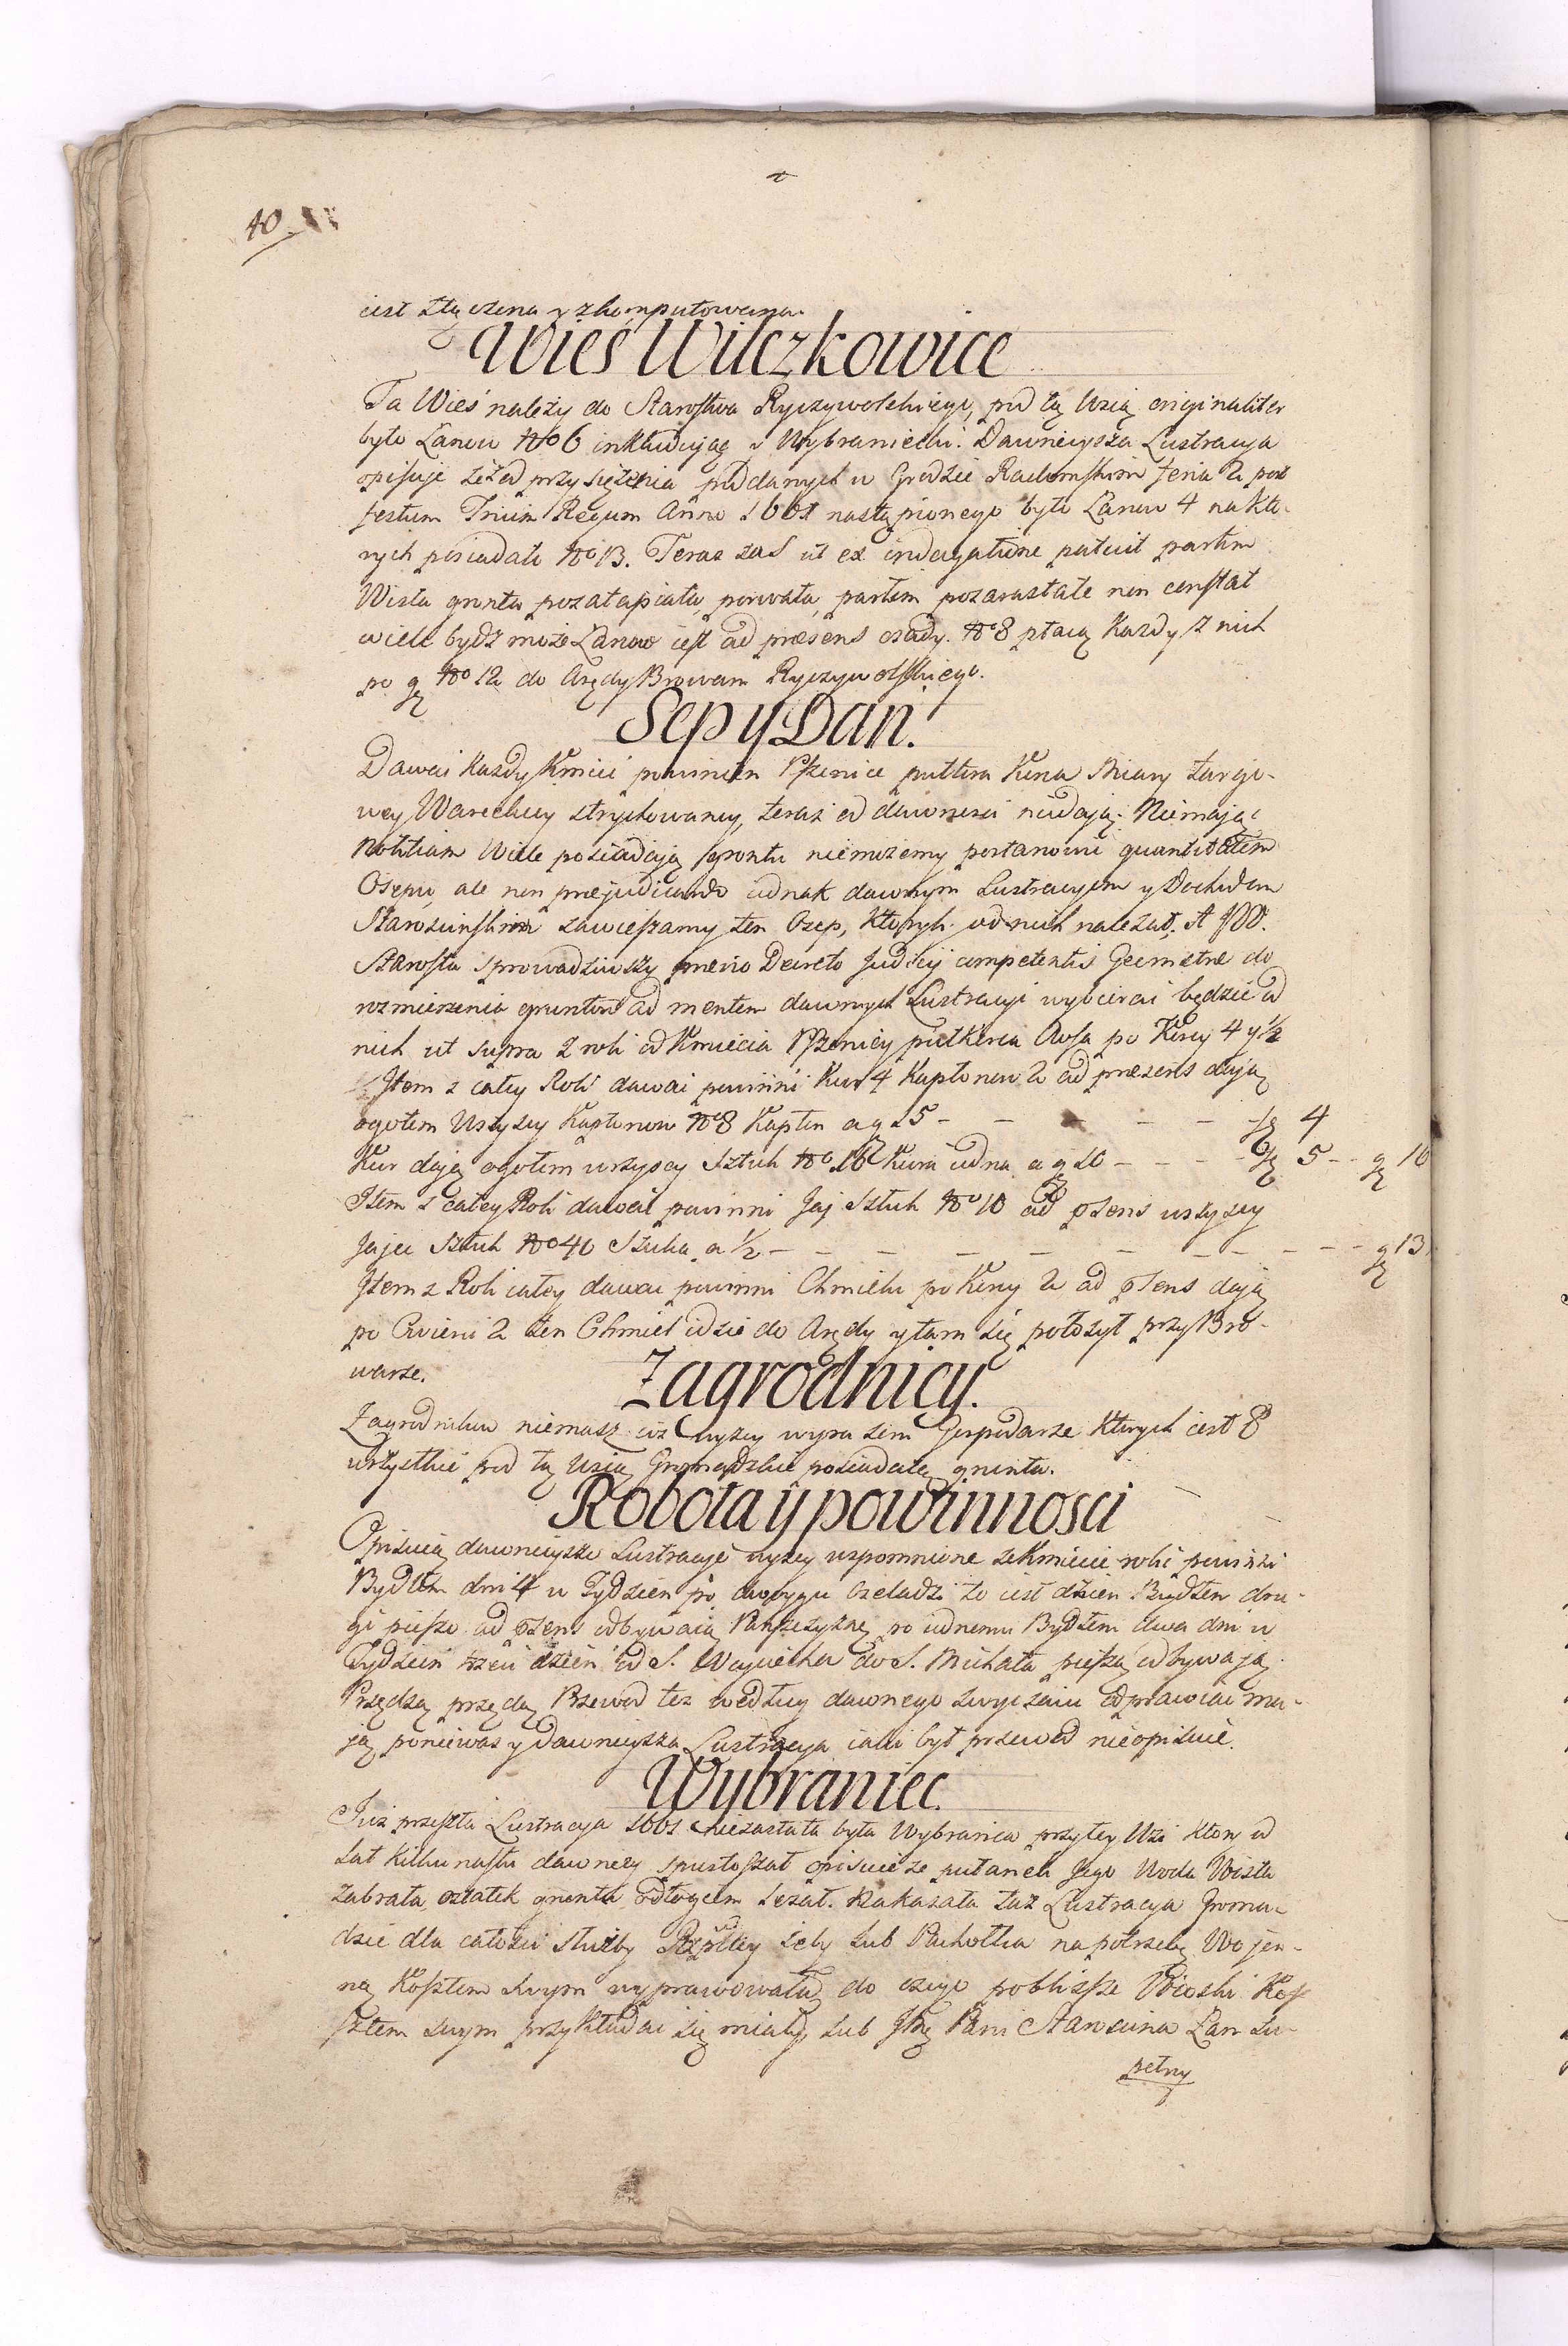 40.
iest złączona y zkomputowana.
Wieś Wilczkowice
Ta Wieś należy do Starostwa Ryczywolskiego, pod tą Wsią originaliter
było Łanow No 6 inkluduiąc y Wybraniecki. Dawnieysza Lustracya
opisuje że od przysiężenia poddanych w Grodzie Radomskim feria 2 post
festum Trium Regum Anno 1661 nastąpionego było Łanow 4 na kto-
rych posiadało No 13. Teraz zaś ut ex indagatione patuit partim
Wisła grunta pozatapiała, porwała, partim pozarastałe non constat
wiele bydź może Łanow iest ad præsens osady. No 8 płacą Kazdy z nich
po g No 12 do Arędy Browaru Ryczywolskiego.
Sep y Dań.
Dawać kazdy Kmieć powinien Pszenice pułtora Korca Miary Targo-
wey Wareckiey strychowaney, teraz od dawnosci niedają. Niemając
Notitiam Wiele posiadają grontu niemożemy postanowić quantitatem
Osepu, ale non præjudicando iednak dawnym Lustracyom y Dochodom
Starościnskim zawieszamy ten Osep, ktorych od nich należał. A JW.
Starosta sprowadziwszy prævio Decreto Judicij competentis Geometre do
rozmierzenia gruntow ad mentem dawnych Lustracyi wybierać będzie od
nich ut supra z roli od Kmiecia Pszenicy pułkorca Owsa po Korcy 4 y ½
Item z całey Roli dawać powinni Kur 4 Kapłonow 2 ad præsens dają
ogołem Wszyscy Kapłonow No 8 Kapłon a g 15 - - - - - zł 4
Kur dają ogołem wszyscy Sztuk No 16 Kura iedna a g 10 - - - - zł 5 - - g 10
Item z całey Roli dawać powinni Jaj Sztuk No 10 ad psens wszyscy
Jajec Sztuk No 40 Sztuka a ½ - - - - - - - - - - g 13
Item z Roli całey dawać powinni Chmielu po Korcy 2 ad psens dają
po Cwierci 2 ten Chmiel idzie do Arędy y tam się położył przy Bro-
warze.
Zagrodnicy.
Zagrodnikow niemasz iuż wyzey wyrazeni Gospodarze ktorych iest 8
wszystkie pod tą Wsią Gromadzkie posiadaią grunta.
Robota y powinnosci
Opisuią dawnieysze Lustracye wyzey wspomnione że Kmiecie rolni powinni
Bydłem dni 4 w Tydzien po dwoygu czeladzi to iest dzien Bydłem dru-
gi pieszo ad psens odbywaią Panszczyznę po iednemu Bydłem dwa dni w
Tydzień trzeci dzień od S. Woyciecha do S. Michała pieszą odbywają.
Przędzę przędą Przewod tez według dawnego zwyczaiu odprawiać ma-
ją poniewaz y Dawnieysza Lustracya iaki był przewod nieopisuie.
Wybraniec.
Iuż przeszła Lustracya 1661 niezastała była Wybranca przy tey Wsi ktory od
Lat kilkunastu dawney spustoszał opisuie ze puł Łanea Jego Woda Wisła
zabrała ostatek gruntu odłogiem lezał. Nakazała taz Lustracya Groma-
dzie dla całości słuzby Rzpltey żeby lub Pachołka na potrzebę Wojen-
ną kosztem swym wyprawowała, do czego poblizsze Wioski Kosz
sztem swym przykładać się miały, lub JMę Pani Starościna Łan zu-
pełny